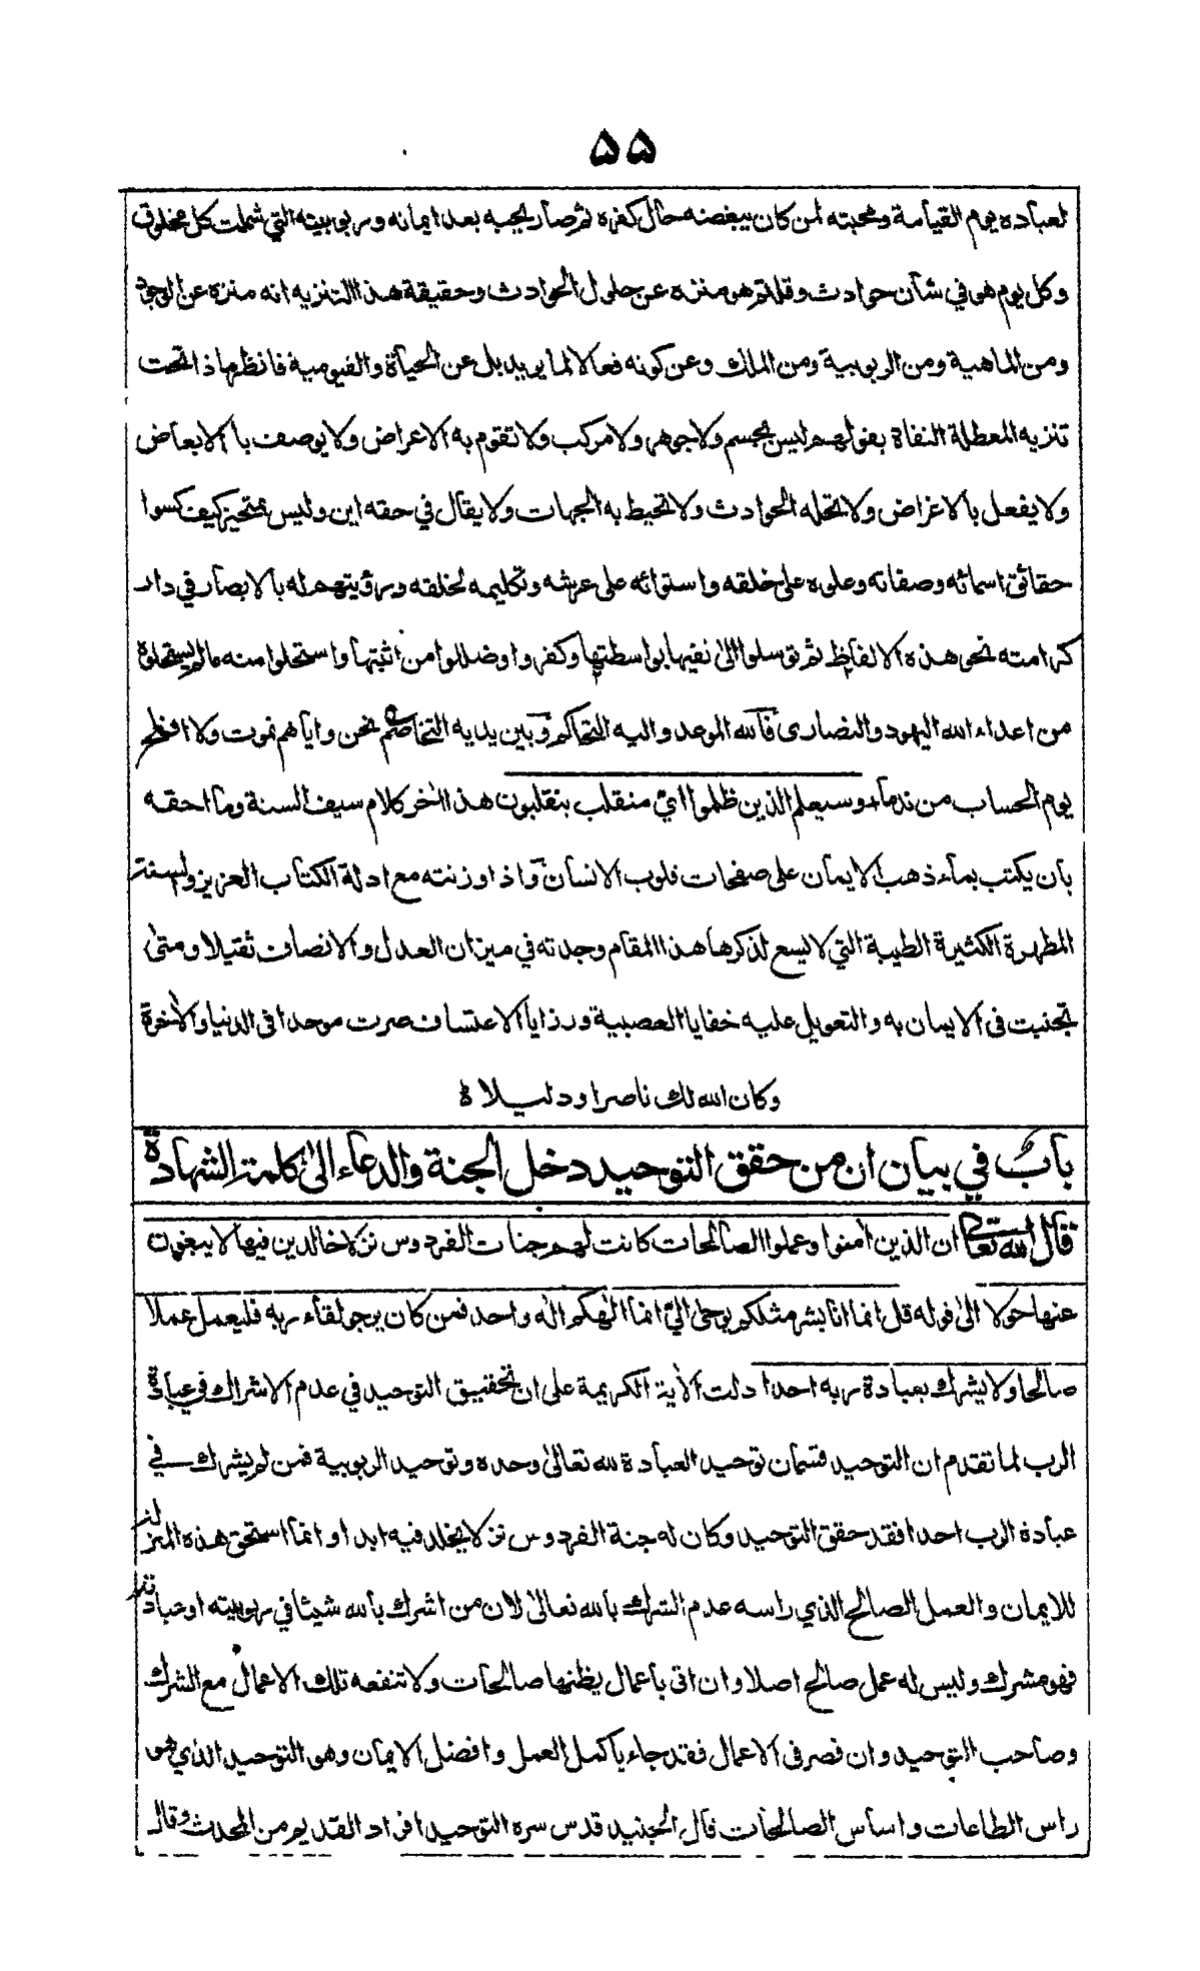 ۵۵
لعباده يوم القيامة ومحبته لمن كان يبغضه حال كفره ثم صار يحبه بعد ايمانه وربوبيته التي شملت كل مخلوق
وكل يوم هو في شأن حوادث وقلتم هو منزه عن حلول الحوادث وحقيقة هذا التنزيه انه منزه عن الوجود
ومن الماهية ومن الربوبية ومن الملك وعن كونه فعالا لما يريد بل عن الحياة والقيومية فانظر ماذا تحت
تنزيه المعطلة النفاة بقولهم ليس بجسم ولا جوهر ولا مركب ولا تقوم به الاعراض ولا يوصف بالابعاض
ولا يفعل بالاغراض ولا تحله الحوادث ولا تحيط به الجهات ولا يقال في حقه اين وليس بمتحيز كيف كسوا
حقائق اسمائه وصفاته وعلوه على خلقه واستوائه على عرشه وتكليمه لخلقه ورؤيتهم له بالابصار في دار
كرامته نحو هذه الالفاظ ثم توسلوا الى نفيها بواسطتها وكفروا وضللوا من اثبتها واستحلوا منه مالم يستحلوه
من اعداء الله اليهود والنصارى فالله الموعد واليه التحاكم وبين يديه التخاصم نحن واياهم نموت ولا افلح
يوم الحساب من ندما وسيعلم الذين ظلموا اي منقلب ينقلبون هذا اخر كلام سيف السنة وما احقه
بان يكتب بماء ذهب الايمان على صفحات قلوب الانسان واذا وزنته مع ادلة الكتاب العزيز والسنة
المطهرة الكثيرة الطيبة التي لا يسع لذكرها هذا المقام وجدته في ميزان العدل والانصاف ثقيلا ومتى
تجنبت في الايمان به والتعويل عليه خفايا العصبية ورزايا الاعتساف صرت موحدا في الدنيا والاخرة
وكان الله لك ناصرا ودليلا ه
باب في بيان ان من حقق التوحيد دخل الجنة والدعاء الى كلمة الشهادة
قال الله تعالى ان الذين امنوا وعملوا الصالحات كانت لهم جنات الفردوس نزلا خالدين فيها لا يبغون
عنها حولا الى قوله قل انما انا بشر مثلكم يوحى الي انما الهكم اله واحد فمن كان يرجو لقاء ربه فليعمل عملا
صالحا ولا يشرك بعبادة ربه احدا دلت الاية الكريمة على ان تحقيق التوحيد في عدم الاشراك في عبادة
الرب لما تقدم ان التوحيد قسمان توحيد العبادة لله تعالى وحده وتوحيد الربوبية فمن لم يشرك في
عبادة الرب احدا فقد حقق التوحيد وكان له جنة الفردوس نزلا يخلد فيه ابدا وانما استحق هذه المنزلة
للايمان والعمل الصالح الذي راسه عدم الشرك بالله تعالى لان من اشرك بالله شيئا في ربوبيته او عبادته
فهو مشرك وليس له عمل صالح اصلا وان اتى باعمال يظنها صالحات ولا تنفعه تلك الاعمال مع الشرك
وصاحب التوحيد وان قصر في الاعمال فقد جاء باكمل العمل وافضل الايمان وهو التوحيد الذي هو
راس الطاعات واساس الصالحات قال الجنيد قدس سره التوحيد افراد القديم من المحدث وقال